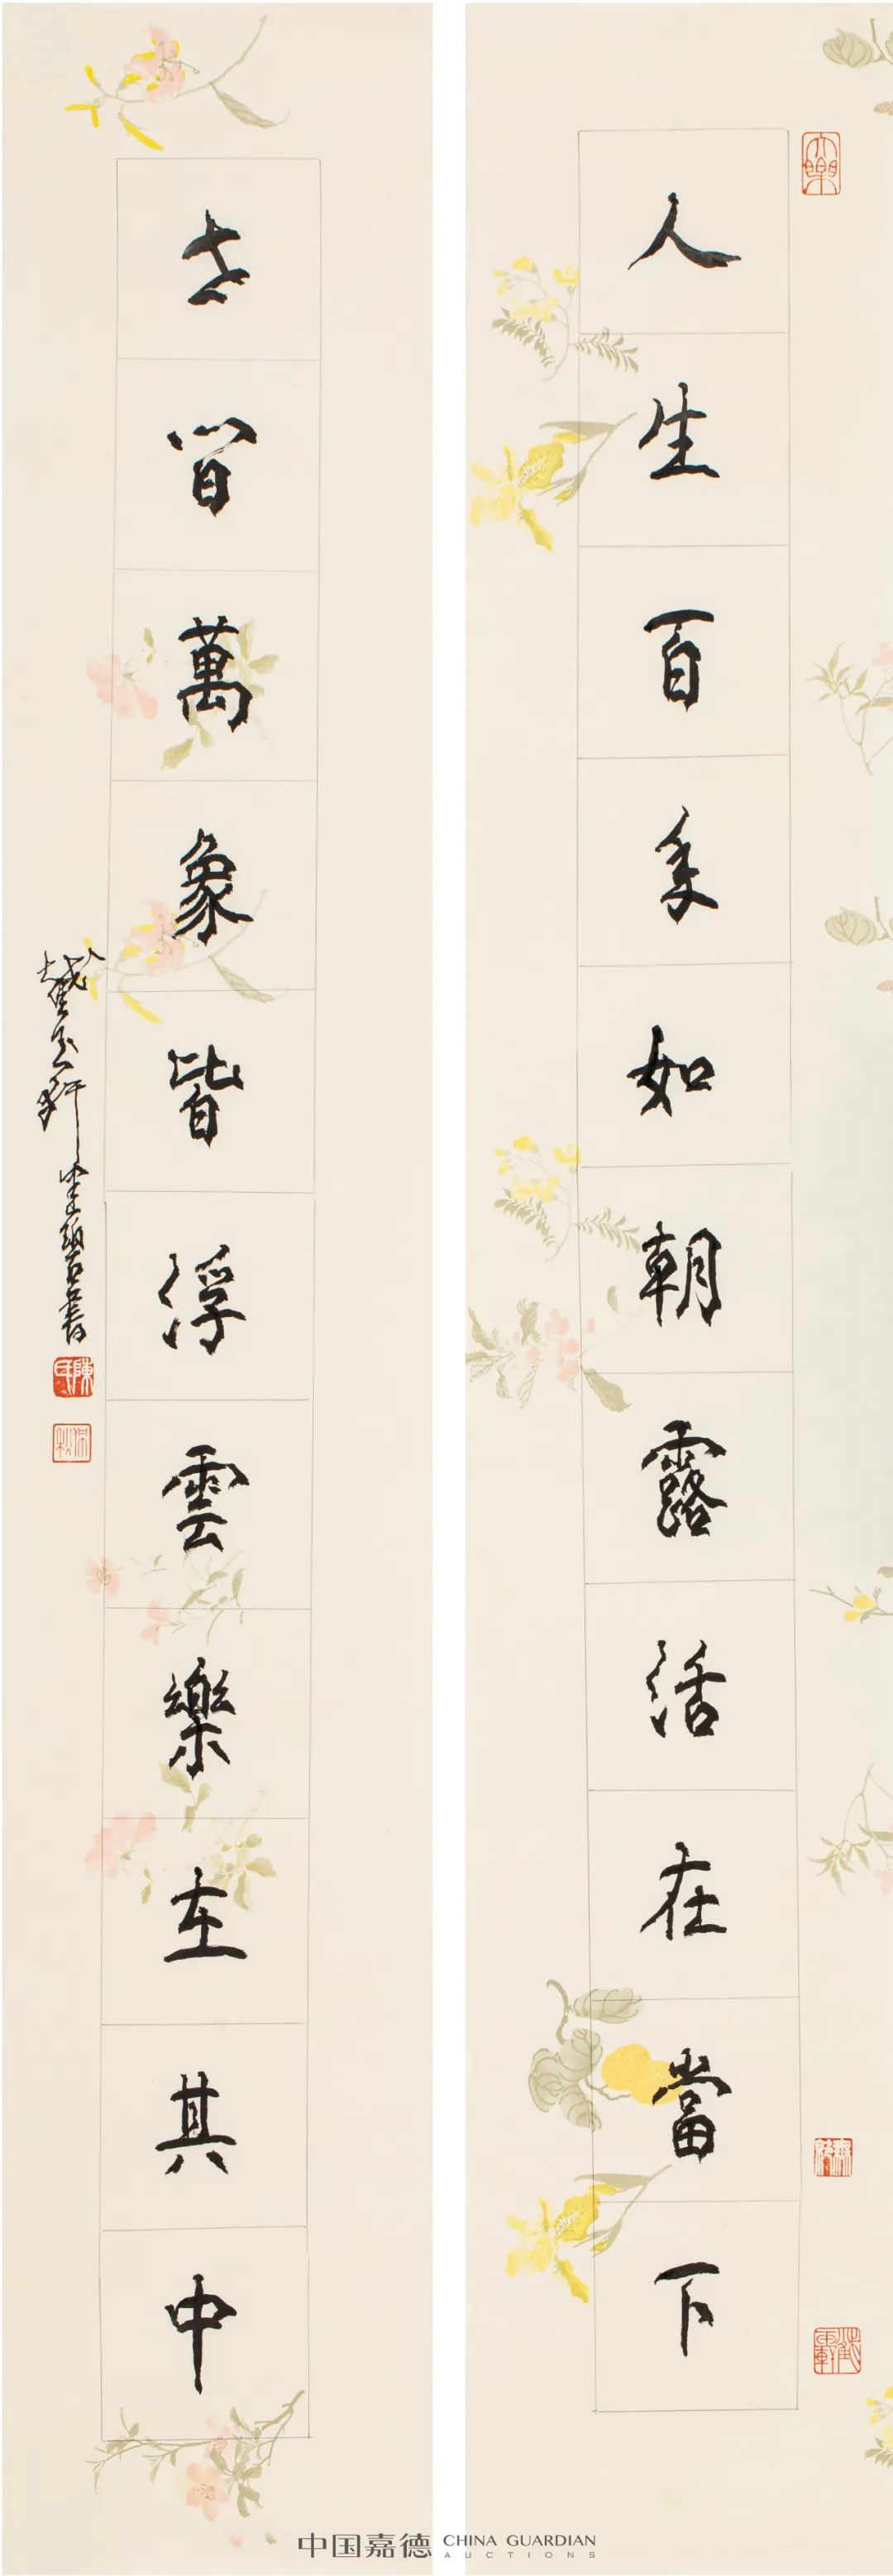 人生百年如朝露活在當下
世間萬象皆浮雲樂在其中
中国嘉德
CHINA GUARDIAN
AUCTIONS